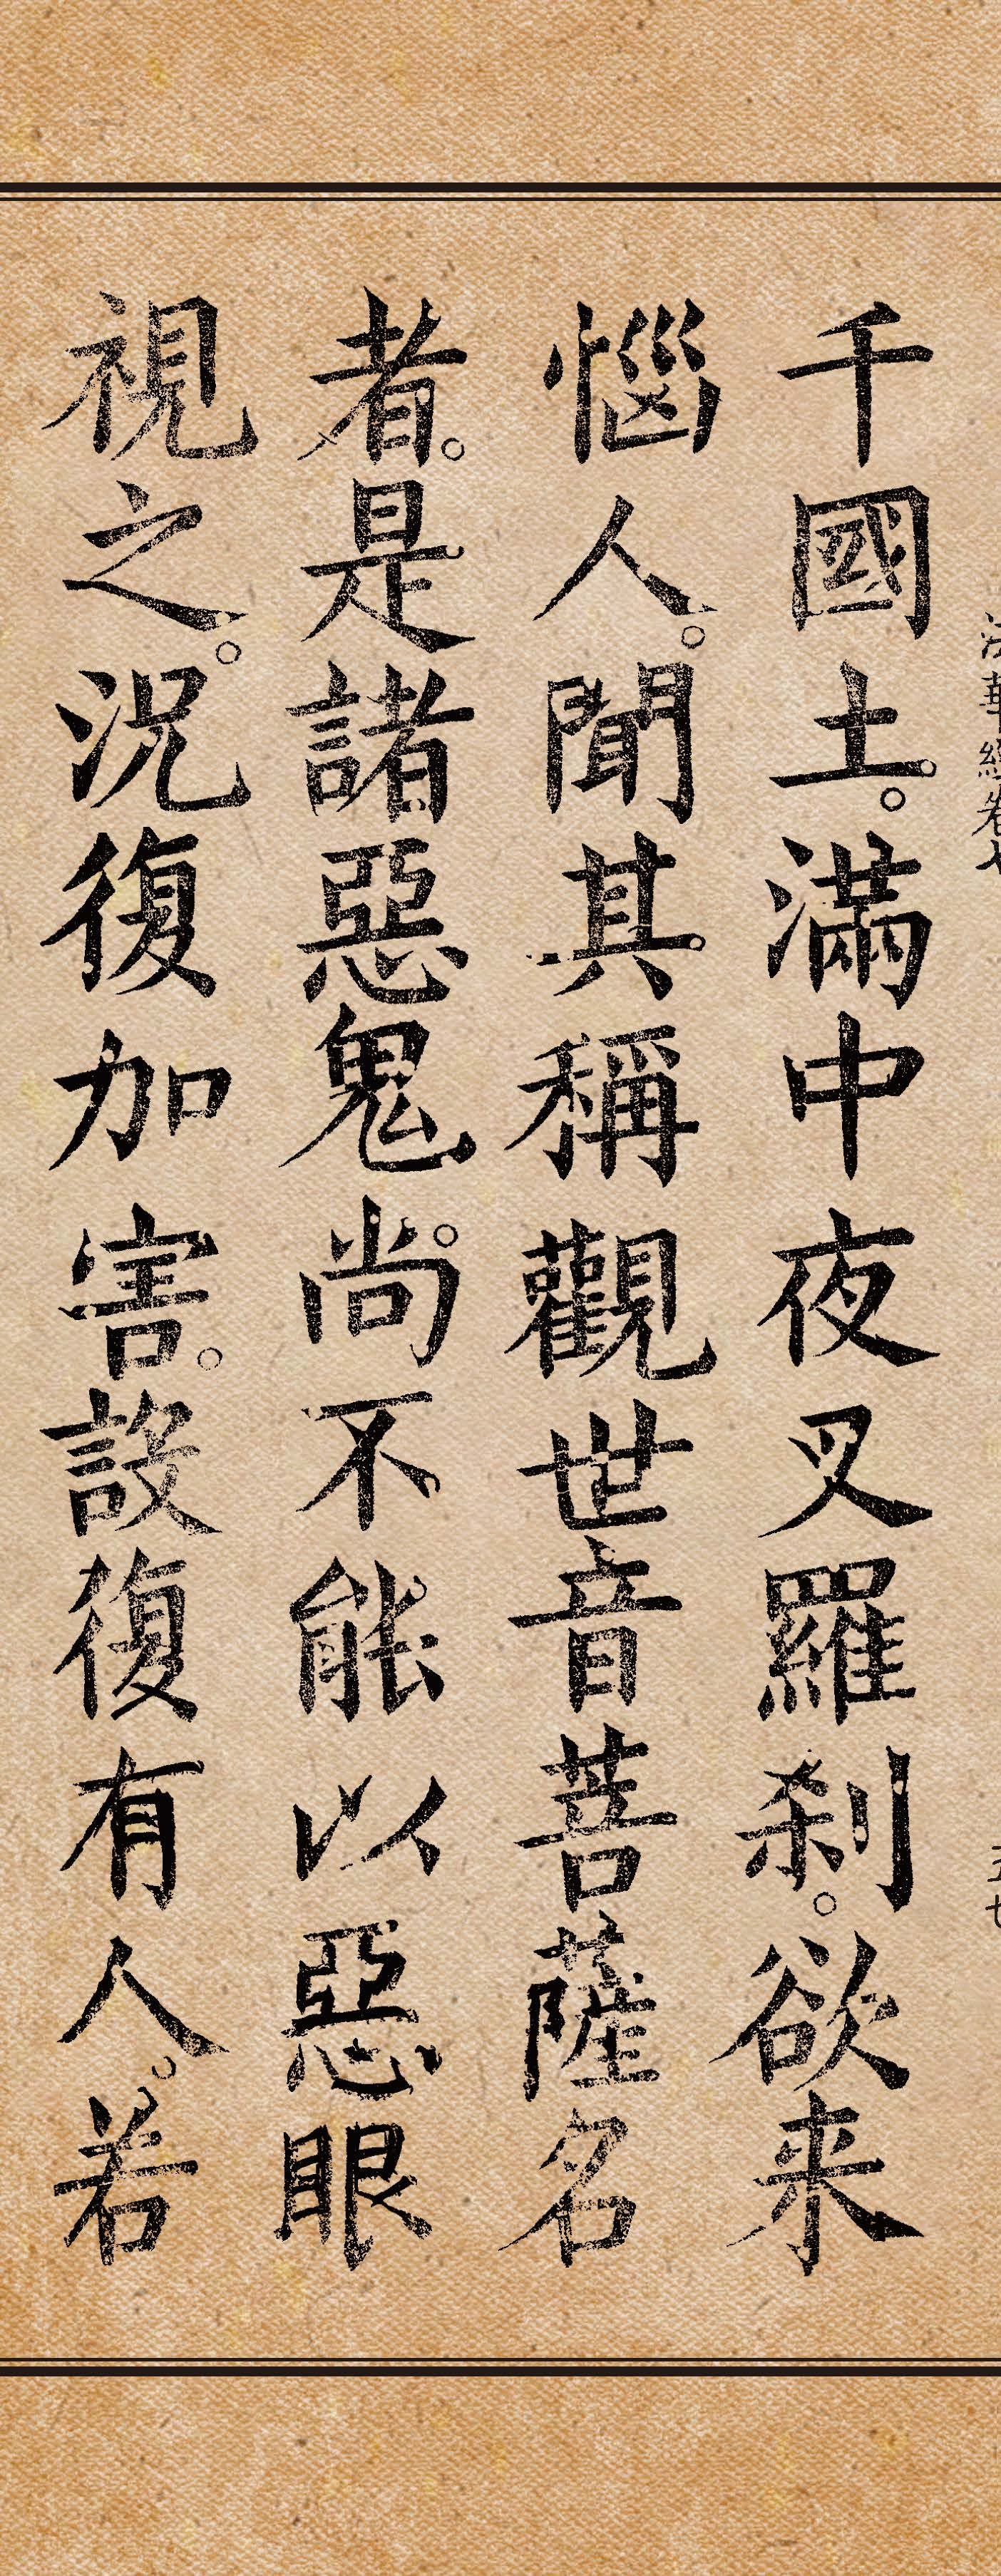 千國土。滿中夜叉羅刹。欲来
惱人。聞其稱觀世音菩薩名
者。是諸惡鬼。尚不能以惡眼
視之。況復加害。設復有人。若